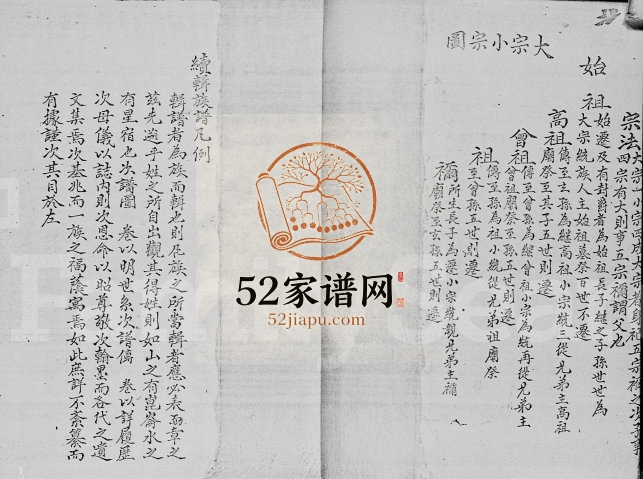 大宗小宗圖
宗法
四宗有大則事五宗禰謂父也
始祖
始遷及有封爵者為始祖長子繼之子孫世世為
大宗統族人主始祖墓祭百世不遷
高祖
傳至玄孫為繼高祖小宗統三從兄弟主高祖
廟祭至其子五世則遷
曾祖
傳至曾孫為繼曾祖小宗為統再從兄弟主
曾祖廟祭至孫五世則遷
祖
傳至孫為祖小統從兄弟祖廟祭
至曾孫五世則遷
禰
所生長子為遷小宗統親兄弟主禰
廟祭至玄孫五世則遷
續輯族譜凡例
輯譜者為族而輯也則凡族之所當輯者應必表而章之
茲先遡乎姓之所自出觀其得姓則如山之有崑崙水之
有星宿也次譜圖 卷以明世系次譜傳 卷以詳履歷
次母儀以誌內則次恩命以昭尊敬次翰墨而各代之遺
文集焉次基兆而一族之福蔭寓焉如此庶詳不紊纂而
有據謹次其目於左
52家谱网
52jiapu.com